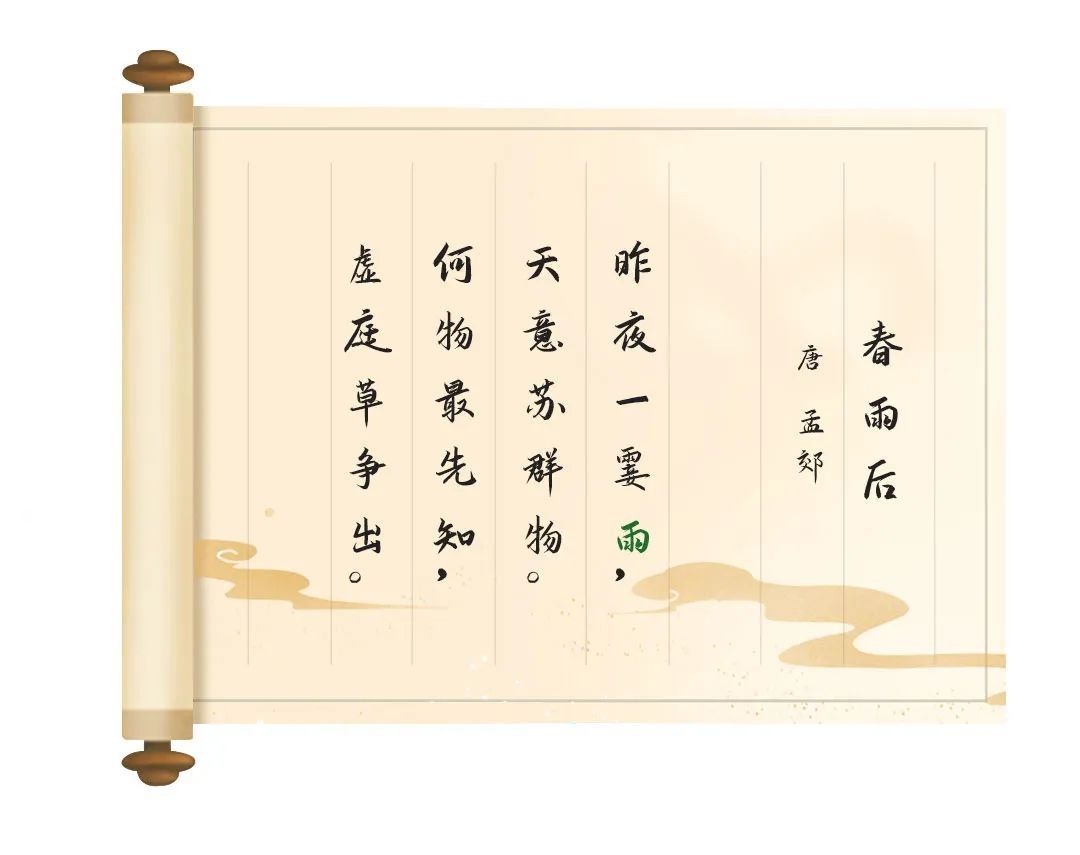 春雨后
唐 孟郊
昨夜一霎雨，
天意苏群物。
何物最先知，
虚庭草争出。